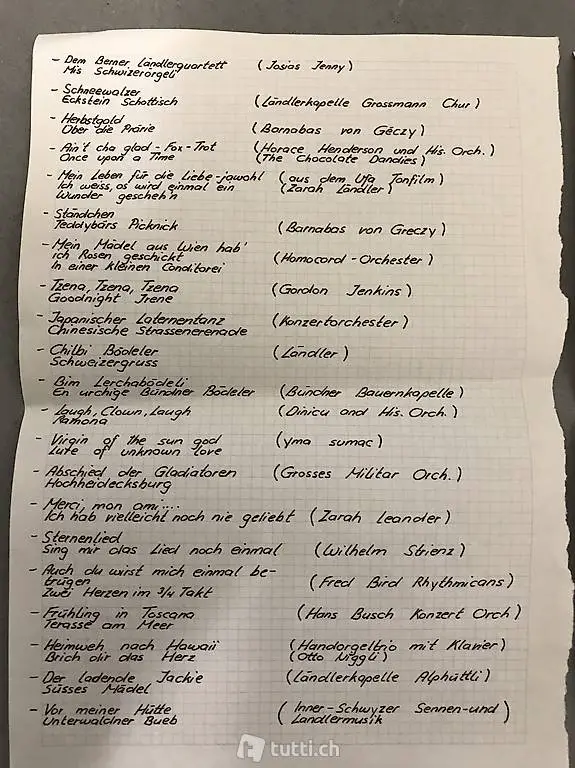 - Dem Berner Ländlerquartett (Josias Jenny)
Mis Schwizerörgeli
- Schneewalzer
Eckstein Schottisch (Ländlerkapelle Grossmann Chur)
- Herbstgold
Über die Prärie (Barnabas von Géczy)
- Ain't cha glad - Fox-Trot (Horace Henderson und His. Orch.)
Once upon a Time (The Chocolate Dandies)
- Mein Leben für die Liebe-jawohl (aus dem Ufa Tonfilm)
Ich weiss, es wird einmal ein (Zarah Ländler)
Wunder gescheh'n
- Ständchen
Teddybärs Picknick (Barnabas von Greczy)
- Mein Mädel aus Wien hab'
ich Rosen geschickt (Homocord-Orchester)
In einer kleinen Conditorei
- Tzena, Tzena, Tzena (Gordon Jenkins)
Goodnight Irene
- Japanischer Laternentanz (Konzertorchester)
Chinesische Strassenserenade
- Chilbi Bödeler (Ländler)
Schweizergruss
- Bim Lerchabödeli
En urchige Bündner Bödeler (Bündner Bauernkapelle)
- Laugh, Clown, Laugh (Dinicu and His. Orch.)
Ramona
- Virgin of the sun god (yma sumac)
Lure of unknown love
- Abschied der Gladiatoren (Grosses Militar Orch.)
Hochheidecksburg
- Merci, mon ami....
Ich hab vielleicht noch nie geliebt (Zarah Leander)
- Sternenlied
Sing mir das Lied noch einmal (Wilhelm Strienz)
- Auch du wirst mich einmal be-
trügen (Fred Bird Rhythmicans)
Zwei Herzen im 3/4 Takt
- Frühling in Toscana (Hans Busch Konzert Orch)
Terasse am Meer
- Heimweh nach Hawaii (Handorgeltrio mit Klavier)
Brich dir das Herz (Otto Niggli)
- Der ladende Jackie (Ländlerkapelle Alphüttli)
Süsses Mädel
- Vor meiner Hütte (Inner-Schwyzer Sennen-und)
Unterwaldner Bueb Ländlermusik
tutti.ch